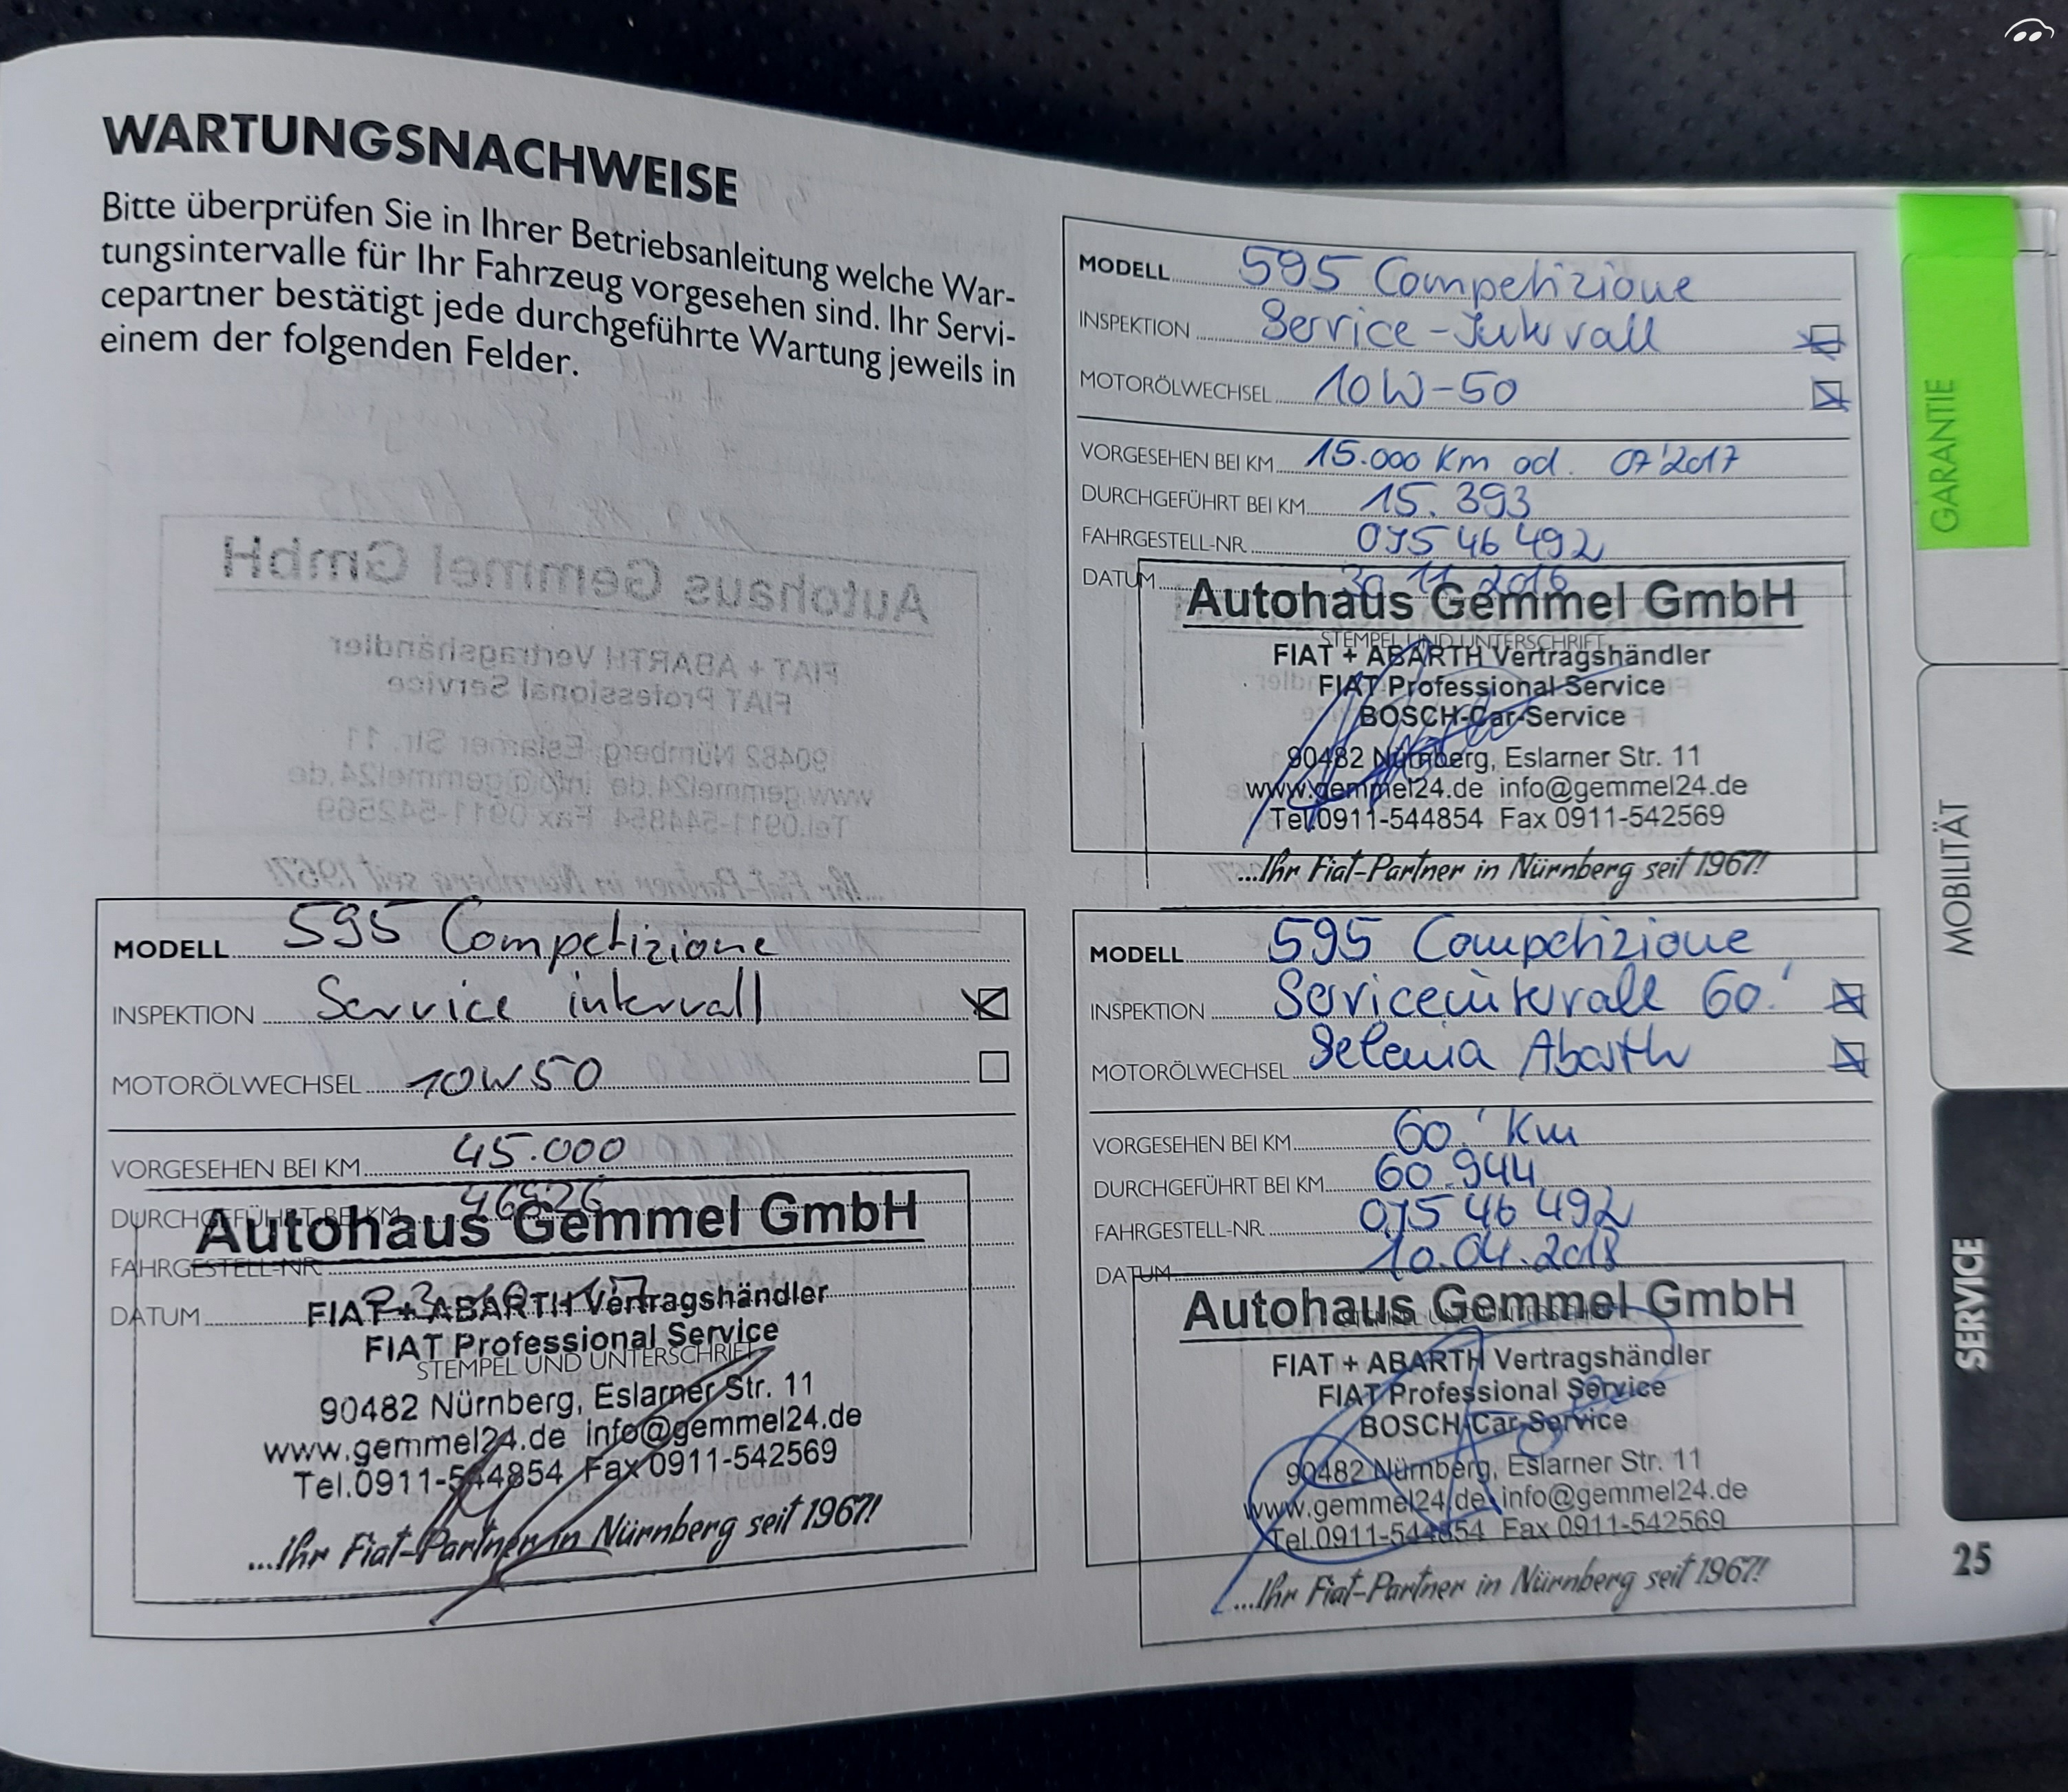 WARTUNGSNACHWEISE
Bitte überprüfen Sie in Ihrer Betriebsanleitung welche War-
tungsintervalle für Ihr Fahrzeug vorgesehen sind. Ihr Servi-
cepartner bestätigt jede durchgeführte Wartung jeweils in
einem der folgenden Felder.
MODELL 595 Competizione
INSPEKTION Service-Intervall
MOTORÖLWECHSEL 10W-50
VORGESEHEN BEI KM 15.000 Km od. 07'2017
DURCHGEFÜHRT BEI KM 15.393
FAHRGESTELL-NR. 0J546492
DATUM 11 2016
Autohaus Gemmel GmbH
STEMPEL UND UNTERSCHRIFT
FIAT + ABARTH Vertragshändler
FIAT Professional Service
BOSCH-Car-Service
90482 Nürnberg, Eslarner Str. 11
www.gemmel24.de info@gemmel24.de
Tel.0911-544854 Fax 0911-542569
...Ihr Fiat-Partner in Nürnberg seit 1967!
MODELL 595 Competizione
INSPEKTION Service intervall
MOTORÖLWECHSEL 10W50
VORGESEHEN BEI KM 45.000
DURCHGEFÜHRT BEI KM
Autohaus Gemmel GmbH
FAHRGESTELL-NR.
DATUM
FIAT + ABARTH Vertragshändler
FIAT Professional Service
STEMPEL UND UNTERSCHRIFT
90482 Nürnberg, Eslarner Str. 11
www.gemmel24.de info@gemmel24.de
Tel.0911-544854 Fax 0911-542569
...Ihr Fiat-Partner in Nürnberg seit 1967!
MODELL 595 Competizione
INSPEKTION Serviceintervall 60.'
MOTORÖLWECHSEL Selenia Abarth
VORGESEHEN BEI KM 60.' Km
DURCHGEFÜHRT BEI KM 60.944
FAHRGESTELL-NR. 0J546492
DATUM 10.04.2018
Autohaus Gemmel GmbH
FIAT + ABARTH Vertragshändler
FIAT Professional Service
BOSCH-Car-Service
90482 Nürnberg, Eslarner Str. 11
www.gemmel24.de info@gemmel24.de
Tel.0911-544854 Fax 0911-542569
...Ihr Fiat-Partner in Nürnberg seit 1967!
GARANTIE
MOBILITÄT
SERVICE
25